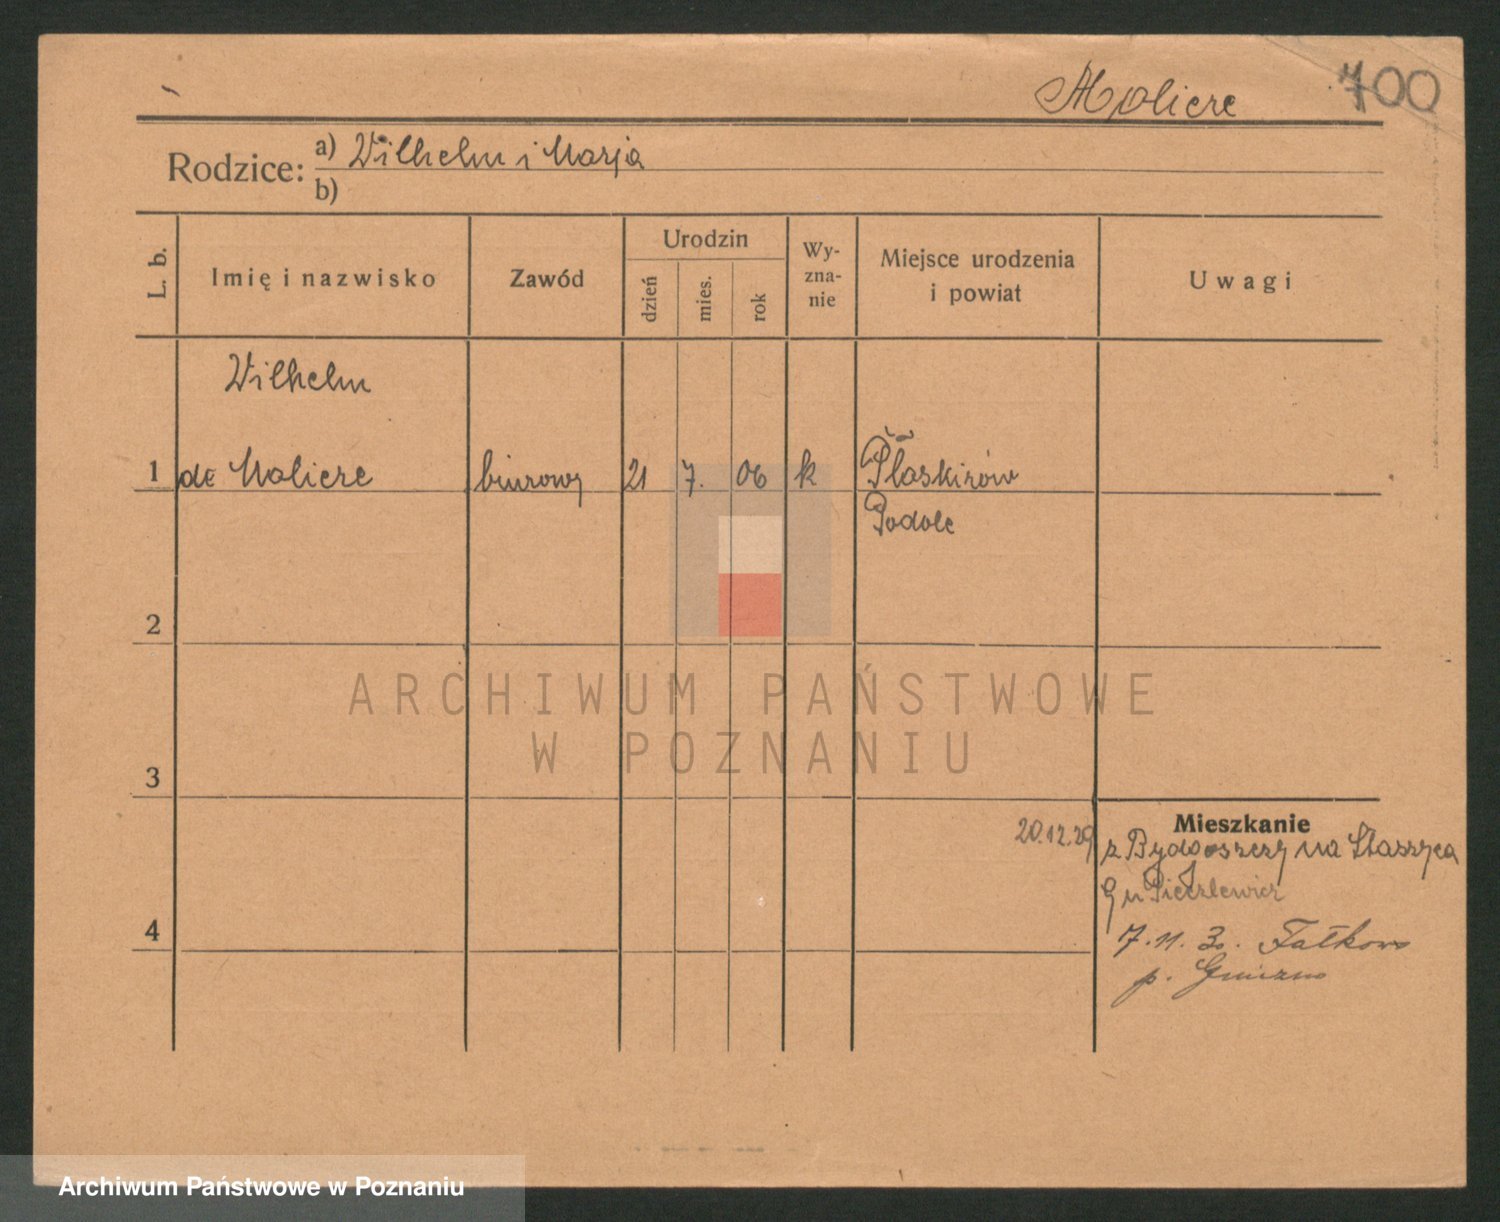 Moliere 700
Rodzice: a) Wilhelm i Marja
b)
L. b.
Imię i nazwisko
Zawód
Urodzin
dzień
mies.
rok
Wy-
zna-
nie
Miejsce urodzenia
i powiat
Uwagi
Wilhelm
1 de Moliere biurowy 21 7. 06 k Płaskirów
Podole
2
3
Mieszkanie
20.12.29 z Bydgoszczy na Staszyca
9 u
4
7.11.30. Fałkowo
p. Gniezno
ARCHIWUM PAŃSTWOWE
W POZNANIU
Archiwum Państwowe w Poznaniu